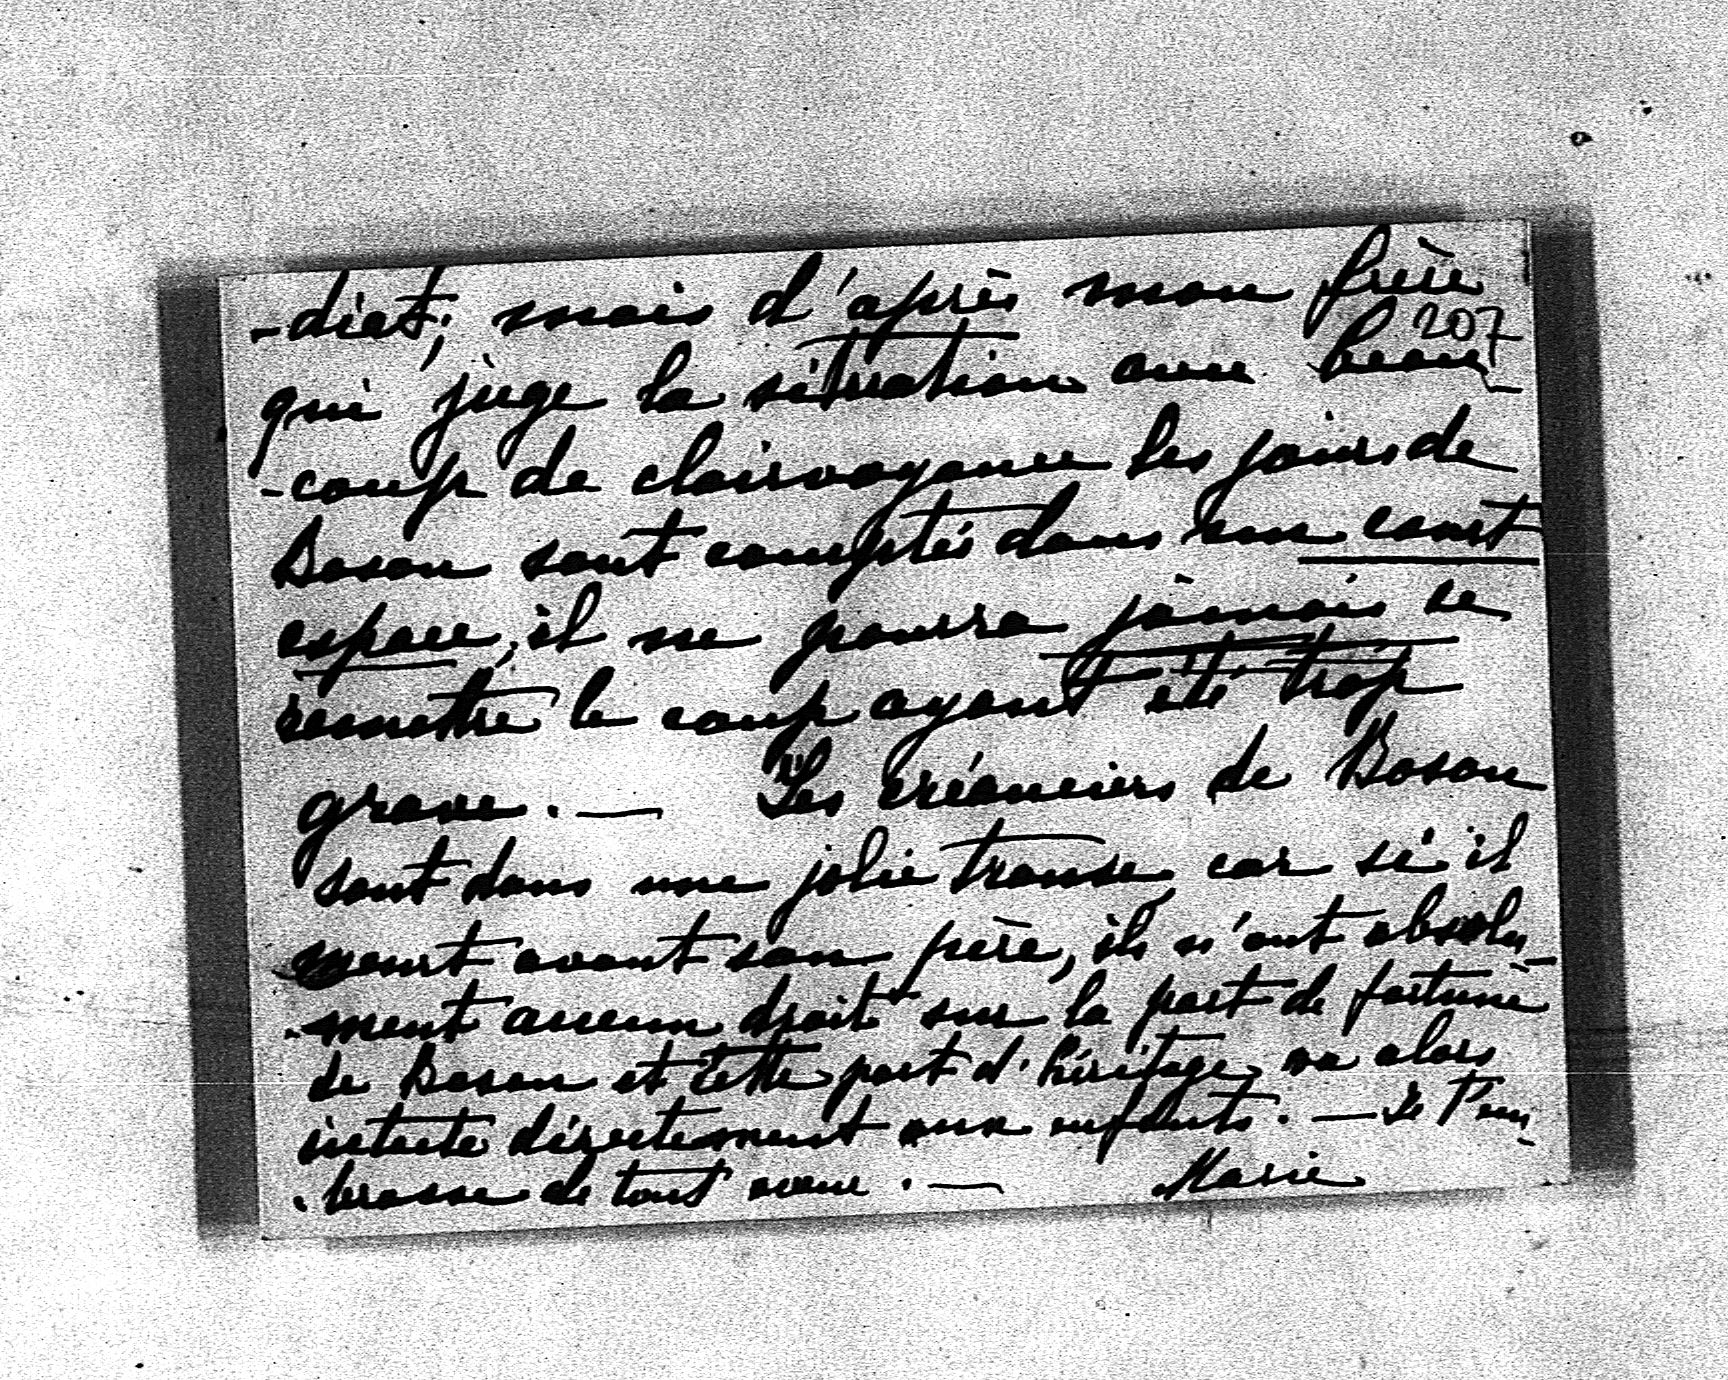 -diat; mais d'après mon frère
207
qui juge la situation avec beau-
-coup de clairvoyance les jours de
Boson sont comptés dans un court
espace, il ne pourra jamais se
remettre le coup ayant été trop
grave. — Les créanciers de Boson
sont dans une jolie transe, car si il
meurt avant son père, ils n'ont absolu-
-ment aucun droit sur la part de fortune
de Boson et cette part d'héritage va alors
directement aux enfants. — Je t'em-
-brasse de tout cœur. — Marie